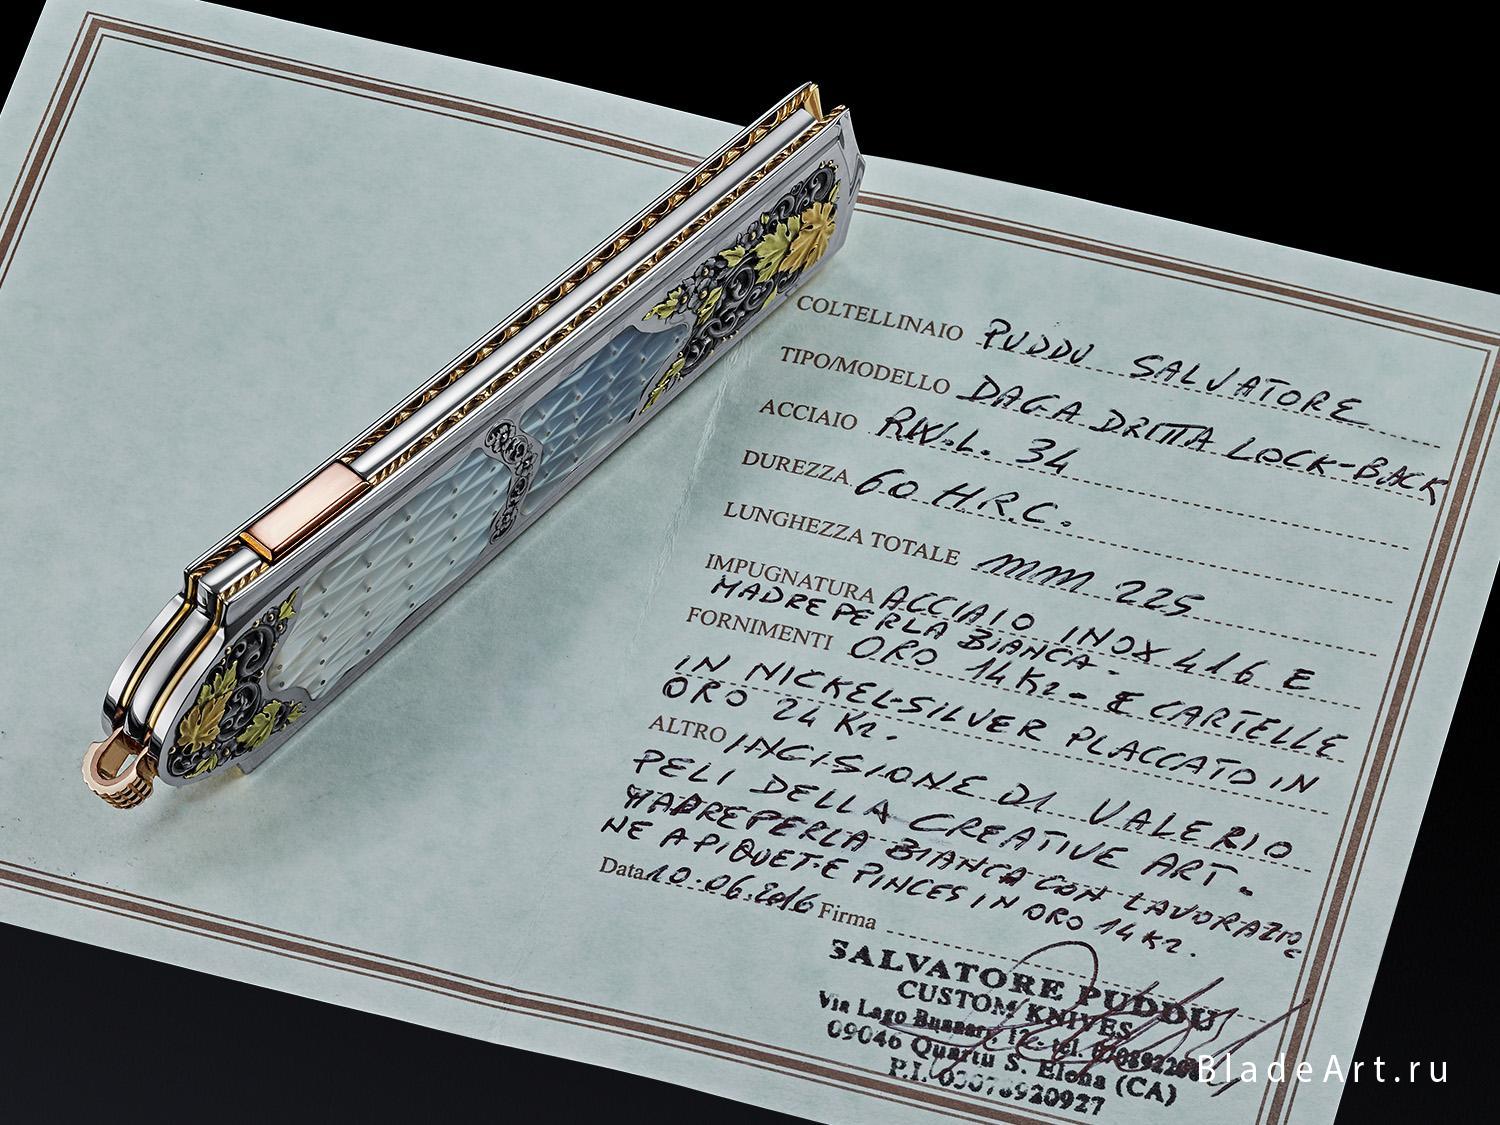 COLTELLINAIO PUDDU SALVATORE
TIPO/MODELLO DAGA DRITTA LOCK-BACK
ACCIAIO RW.L. 34
DUREZZA 60 H.R.C.
LUNGHEZZA TOTALE mm 225
IMPUGNATURA ACCIAIO INOX 416 E
MADREPERLA BIANCA.
FORNIMENTI ORO 14 Kr - E CARTELLE
IN NICKEL-SILVER PLACCATO IN
ORO 24 Kr.
ALTRO INCISIONE DI VALERIO
PELI DELLA CREATIVE ART.
MADREPERLA BIANCA CON LAVORAZIO
NE A PIQUET E PINCES IN ORO 14 Kr.
Data 10.06.2016 Firma
SALVATORE PUDDU
CUSTOM KNIVES
Via Lago 12 - tel.
09046 Quartu S. Elena (CA)
P.I.
BladeArt.ru